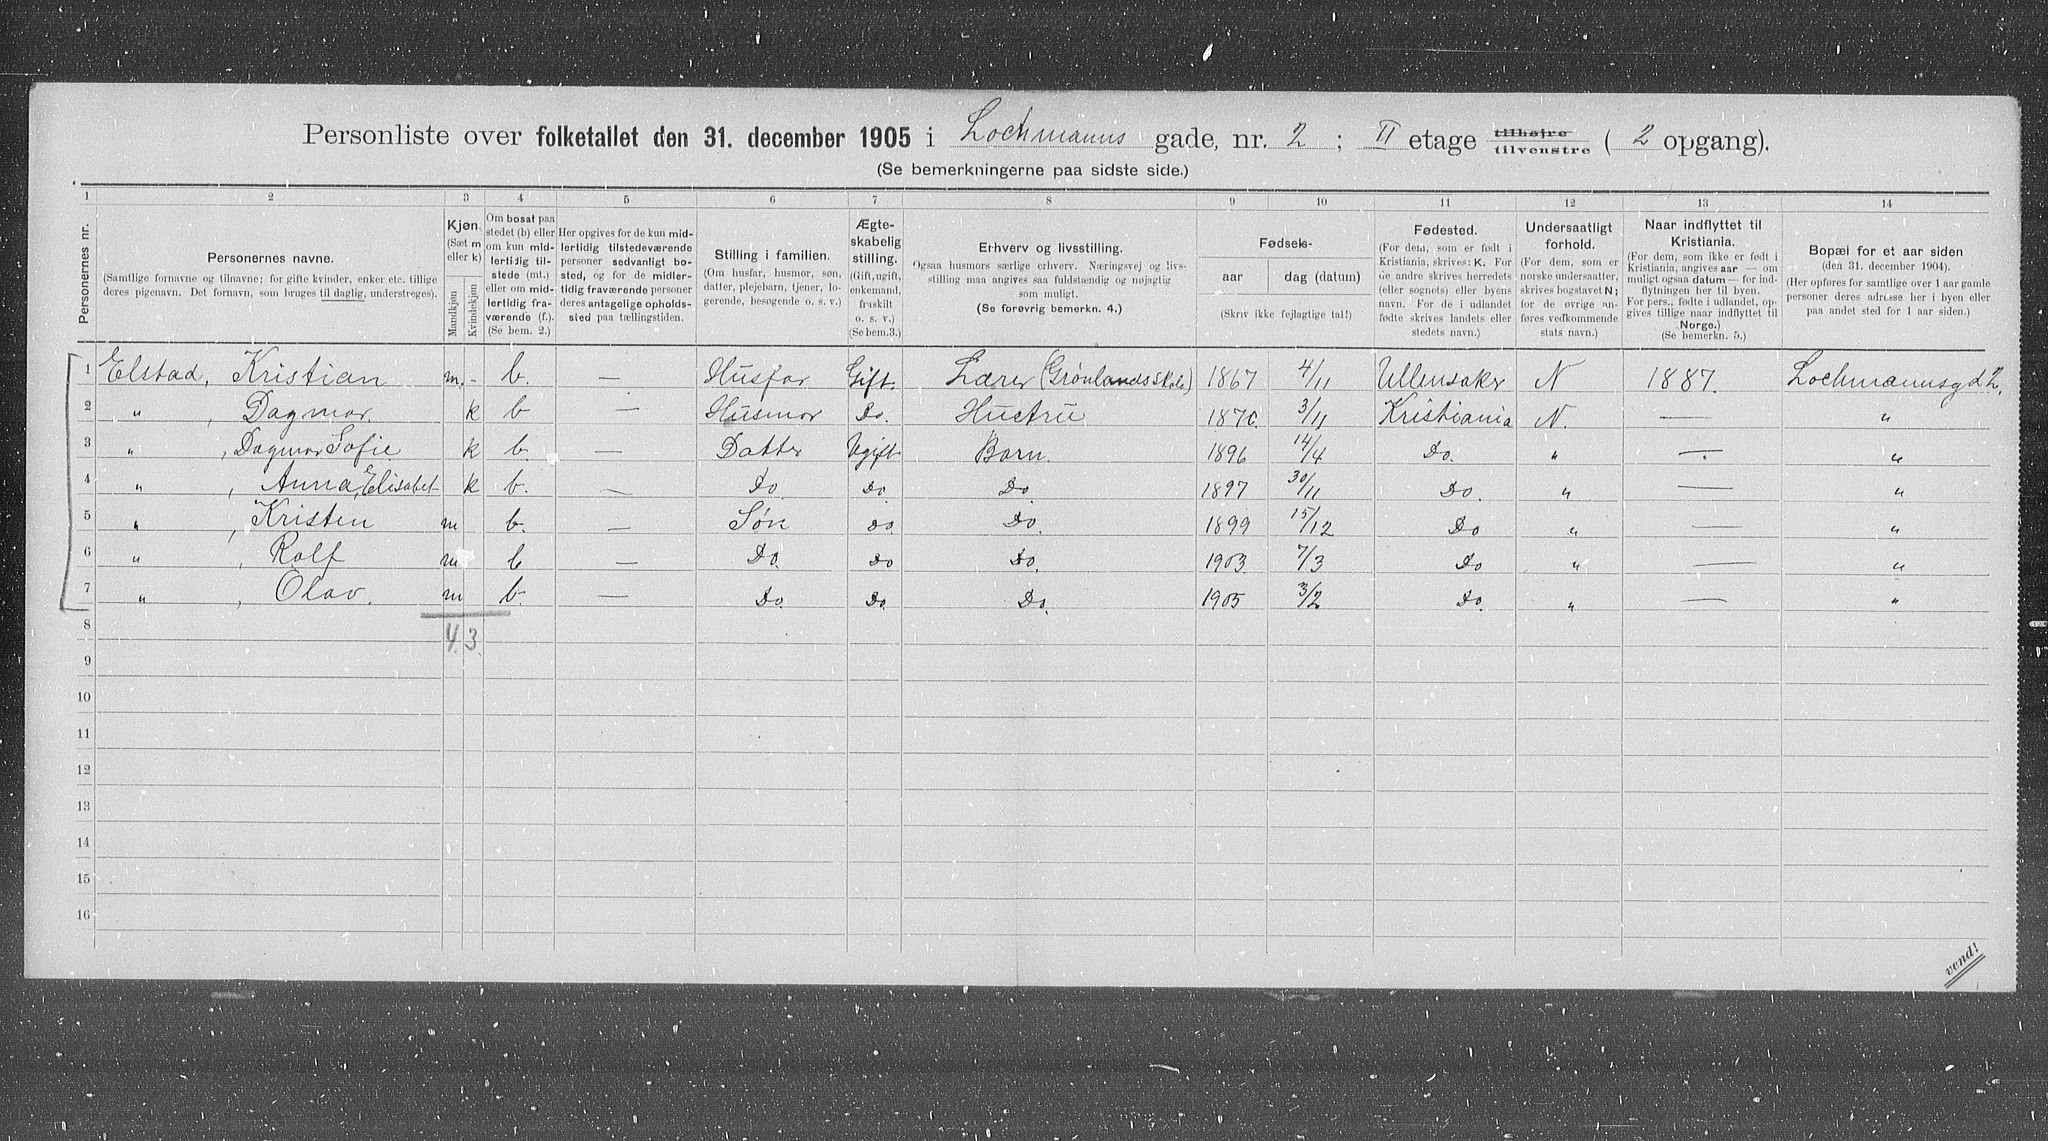 Personliste over folketallet den 31. december 1905 i Lochmanns gade, nr. 2 ; II etage tilhøjre tilvenstre ( 2 opgang).
(Se bemerkningerne paa sidste side.)
1 2 3 4 5 6 7 8 9 10 11 12 13 14
Personernes nr.
Personernes navne.
(Samtlige fornavne og tilnavne; for gifte kvinder, enker etc. tillige
deres pigenavn. Det fornavn, som bruges til daglig, understreges).
Kjøn.
(Sæt m
eller k)
Mandkjøn
Kvindekjøn
Om bosat paa
stedet (b) eller
om kun mid-
lertidig til-
stede (mt.)
eller om mid-
lertidig fra-
værende (f.).
(Se bem. 2.)
Her opgives for de kun mid-
lertidig tilstedeværende
personer sedvanlig bo-
sted, og for de midler-
tidig fraværende personer
deres antagelige opholds-
sted paa tællingstiden.
Stilling i familien.
(Om husfar, husmor, søn,
datter, plejebarn, tjener, lo-
gerende, besøgende o. s. v.)
Ægte-
skabelig
stilling.
(Gift, ugift,
enkemand,
fraskilt
o. s. v.)
(Se bem. 3.)
Erhverv og livsstilling.
Ogsaa husmors særlige erhverv. Næringsvej og livs-
stilling maa angives saa fuldstændig og nøjagtig
som muligt.
(Se forøvrig bemerkn. 4.)
Fødsels-
aar dag (datum)
(Skriv ikke fejlagtige tal!)
Fødested.
(For dem, som er født i
Kristiania, skrives: K. For
de andre skrives herredets
(eller sognets) eller byens
navn. For de i udlandet
fødte skrives landets eller
stedets navn.)
Undersaatligt
forhold.
(For dem, som er
norske undersaatter,
skrives bogstavet N;
for de øvrige an-
føres vedkommende
stats navn.)
Naar indflyttet til
Kristiania.
(For dem, som ikke er født i
Kristiania, angives aar — om
muligt ogsaa datum — for ind-
flytningen her til byen.
For pers., fødte i udlandet, op-
gives tillige naar indflyttet til
Norge.)
(Se bemerkn. 5.)
Bopæl for et aar siden
(den 31. december 1904).
(Her opføres for samtlige over 1 aar gamle
personer deres adresse her i byen eller
paa andet sted for 1 aar siden.)
1 Elstad, Kristian m. - b. — Husfar Gift. Lærer (Grønlandsskole) 1867 4/11 Ullensaker N 1887. Lochmannsgd 2.
2 " , Dagmar. k b — Husmor Do. Hustru 1870. 3/11 Kristiania N. — "
3 " , Dagmar Sofie k b. — Datter Ugift Barn. 1896 14/4 Do. " — "
4 " , Anna Elisabet k b. — Do. Do. Do. 1897 30/11 Do. " — "
5 " , Kristen m b. — Søn Do. Do. 1899 15/12 Do " — "
6 " , Rolf m b — Do. Do Do. 1903. 7/3 Do " — "
7 " , Olav. m b. — Do. Do. Do. 1905 3/2 Do. " — "
8 4. 3.
9
10
11
12
13
14
15
16
vend!